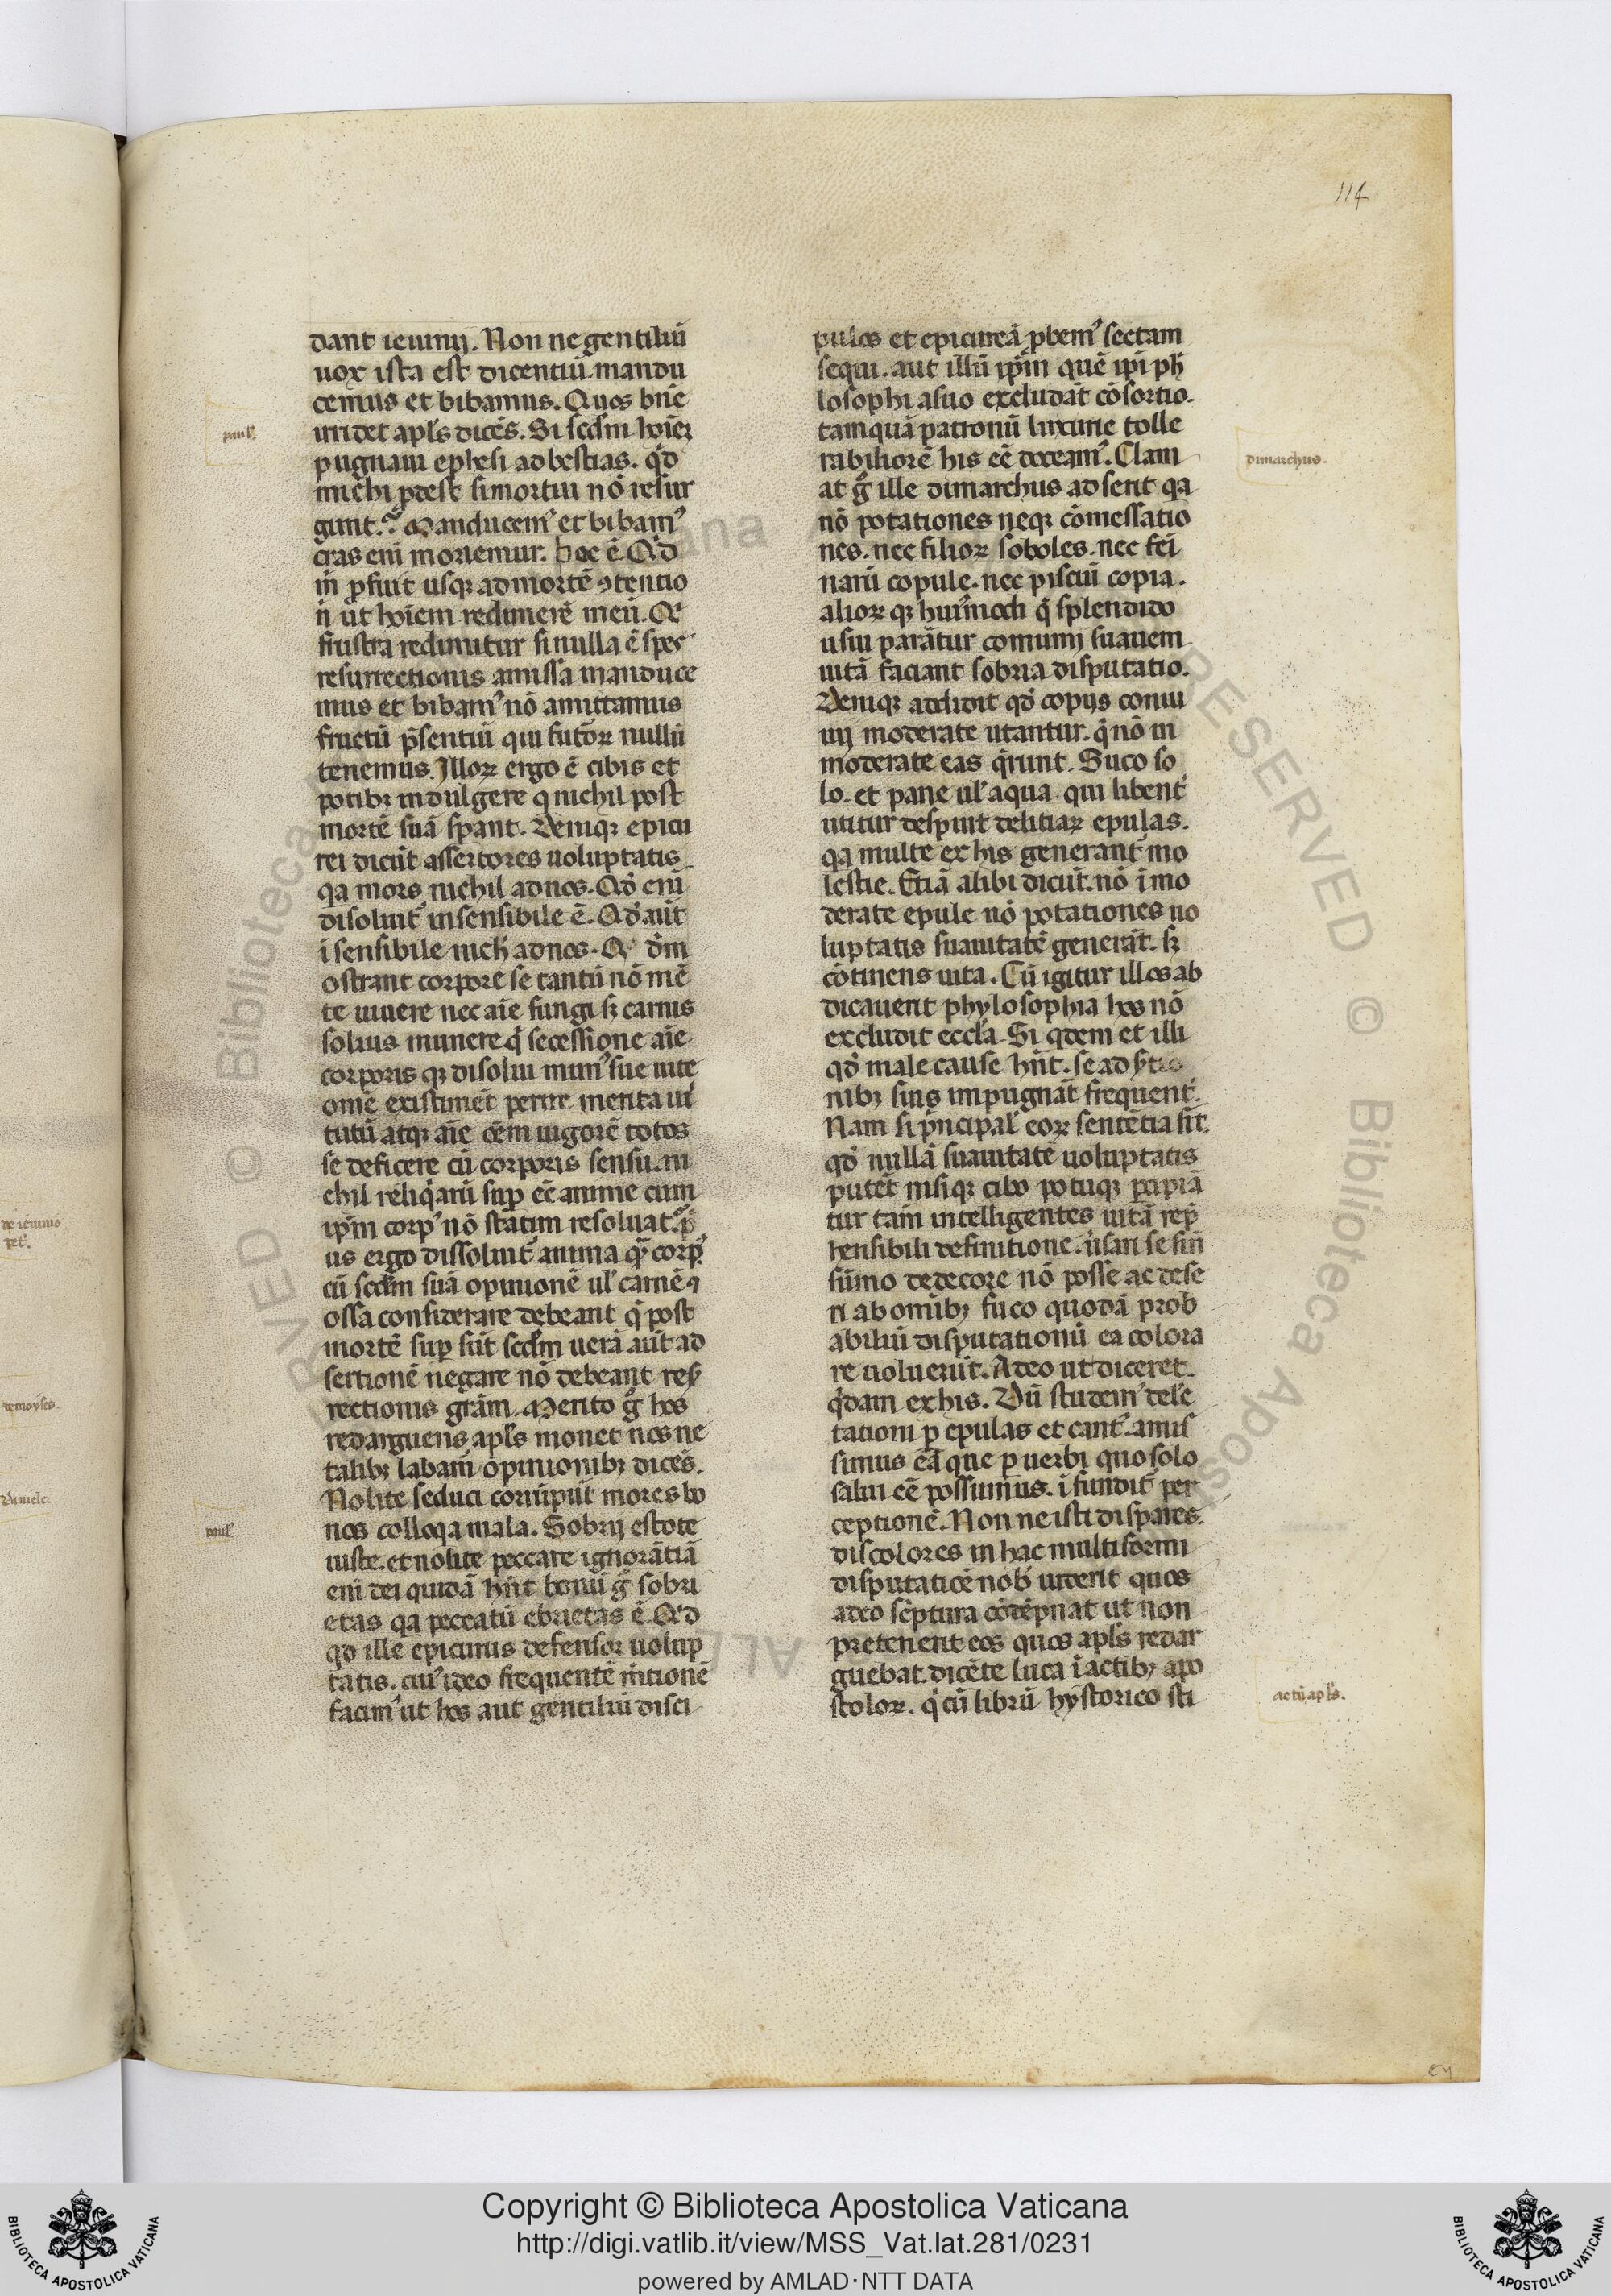 114
dant ieiunij. Non ne gentiliū
uox ista est dicentiū. mandu
cemus et bibamus. Quos bn̄e
irridet apl's dicēs. Si scd'm hoīeȝ
pugnaui ephesi ad bestias. qd'
michi ꝓdest si mortui nō resur
gunt.? Manducem' et bibam'
cras eni moriemur. hoc ē. Qd'
m̄ ꝓfuit usqȝ ad mortē ꝯtentio
n̄ ut hoīem redimerē meū. Et
frustra redimitur si nulla ē spes
resurrectionis amissa manduce
mus et bibam' nō amittamus
fructū p̄sentiū qui futōꝝ nullū
tenemus. Illoꝝ ergo ē cibis et
potibȝ indulgere q nichil post
mortē suā spant. Deniqȝ epicu
rei dicūt assertores uoluptatis
qa mors nichil ad nos. Qd' enī
disoluit' insensibile ē. Qd' aūt
īsensibile nich' ad nos. Q' d'm
ostrant corpore se tantū nō mē
te uiuere nec aīe fungi sȝ carnis
solius munere q̇ secessione aīe
corporis qȝ disolui mun' sue uite
omē existimēt perire merita uir
tutū atqȝ aīe oēm uigorē totos
se deficere cū corporis sensu. ni
chil reliq̇arū suꝑ eē anime cum
ip̄m corp' nō statim resoluat'. p̄
us ergo dissoluit' anima qȝ corp'.
cū scd'm suā opinionē ul' carnē ⁊
ossa considerare debeant q̇ post
mortē suꝑ sūt scd'm uerā aūt ad
sertionē negare nō debeant resur
rectionis grām. Merito g̊ hos
redarguens apl's monet nos ne
talibȝ labam̄ opinionibȝ dicēs.
Nolite seduci corrūpūt mores bo
nos colloqa mala. Sobrij estote
iuste. et nolite peccare ignorātiā
eni dei quidā hn̄t bonū g̊ sobri
etas qa peccatū ebrietas ē. Qd'
qd ille epicurus defensor uolup
tatis. cui' ideo frequentē m̄tionē
facim' ut hos aut gentiliū disci
pulos et epicureā ꝓbem' sectam
sequi. aut illū ip̄m quē ip̄i ph'
losophi a suo excludāt cōsortio.
tamquā patronū luxurie tolle
rabiliorē his eē doceam'. Clam
at g̊ ille dimarchus adserit qa
nō potationes neqȝ cōmessatio
nes. nec filioꝝ soboles. nec femi
narū copule. nec pisciū copia.
alioꝝ qȝ hui'modi q̇ splendido
usui parātur comunij suauem
uitā faciant sobria disputatio.
Deniqȝ addidit qd' copijs coniu
uij moderate utantur. q̇ nō in
moderate eas q̇runt. Suco so
lo. et pane ul' aqua. qui libent'
utitur despuit delitiaꝝ epulas.
qa multe ex his generant' mo
lestie. Etiā alibi dicūt. nō īmo
derate epule nō potationes uo
luptatis suauitatē generāt. sȝ
cōtinens uita. Cū igitur illos ab
dicauerit phylosophia hos nō
excludit eccl'a. Si qdem et illi
qd' male cause hn̄t. se ad s'tio
nibȝ suis impugnāt frequent'.
Nam si p̄ncipal' eoꝝ sentētia sit.
qd' nullā suauitatē uoluptatis
putēt nisi qȝ cibo potuqȝ ꝑcipiā
tur tam intelligentes uitā rep̄
hensibili definitione. uersari se sin̄
sūmo dedecore nō posse ac dese
ri ab omībȝ fuco quodā prob
abiliū disputationū ea colora
re uoluerūt. Adeo ut diceret.
q̇dam ex his. Dū studem' dele
tationi ꝑ epulas et cant' amis
simus eā que ꝑ uerbi quo solo
salui eē possumus. īfundit' per
ceptionē. Non ne isti dispares.
discolores in hac multiformi
disputatioē nob' uiderit quos
adeo sc'ptura cōdēpnat ut non
pretenerit eos quos apl's redar
guebat. dicēte luca ī actibȝ apo
stoloꝝ. q̇ cū librū hystorico sti
paul'.
paul'
dimarchus.
actū apl's.
de ieiunio
demoyses.
Copyright © Biblioteca Apostolica Vaticana
http://digi.vatlib.it/view/MSS_Vat.lat.281/0231
powered by AMLAD·NTT DATA
BIBLIOTECA APOSTOLICA VATICANA
BIBLIOTECA APOSTOLICA VATICANA